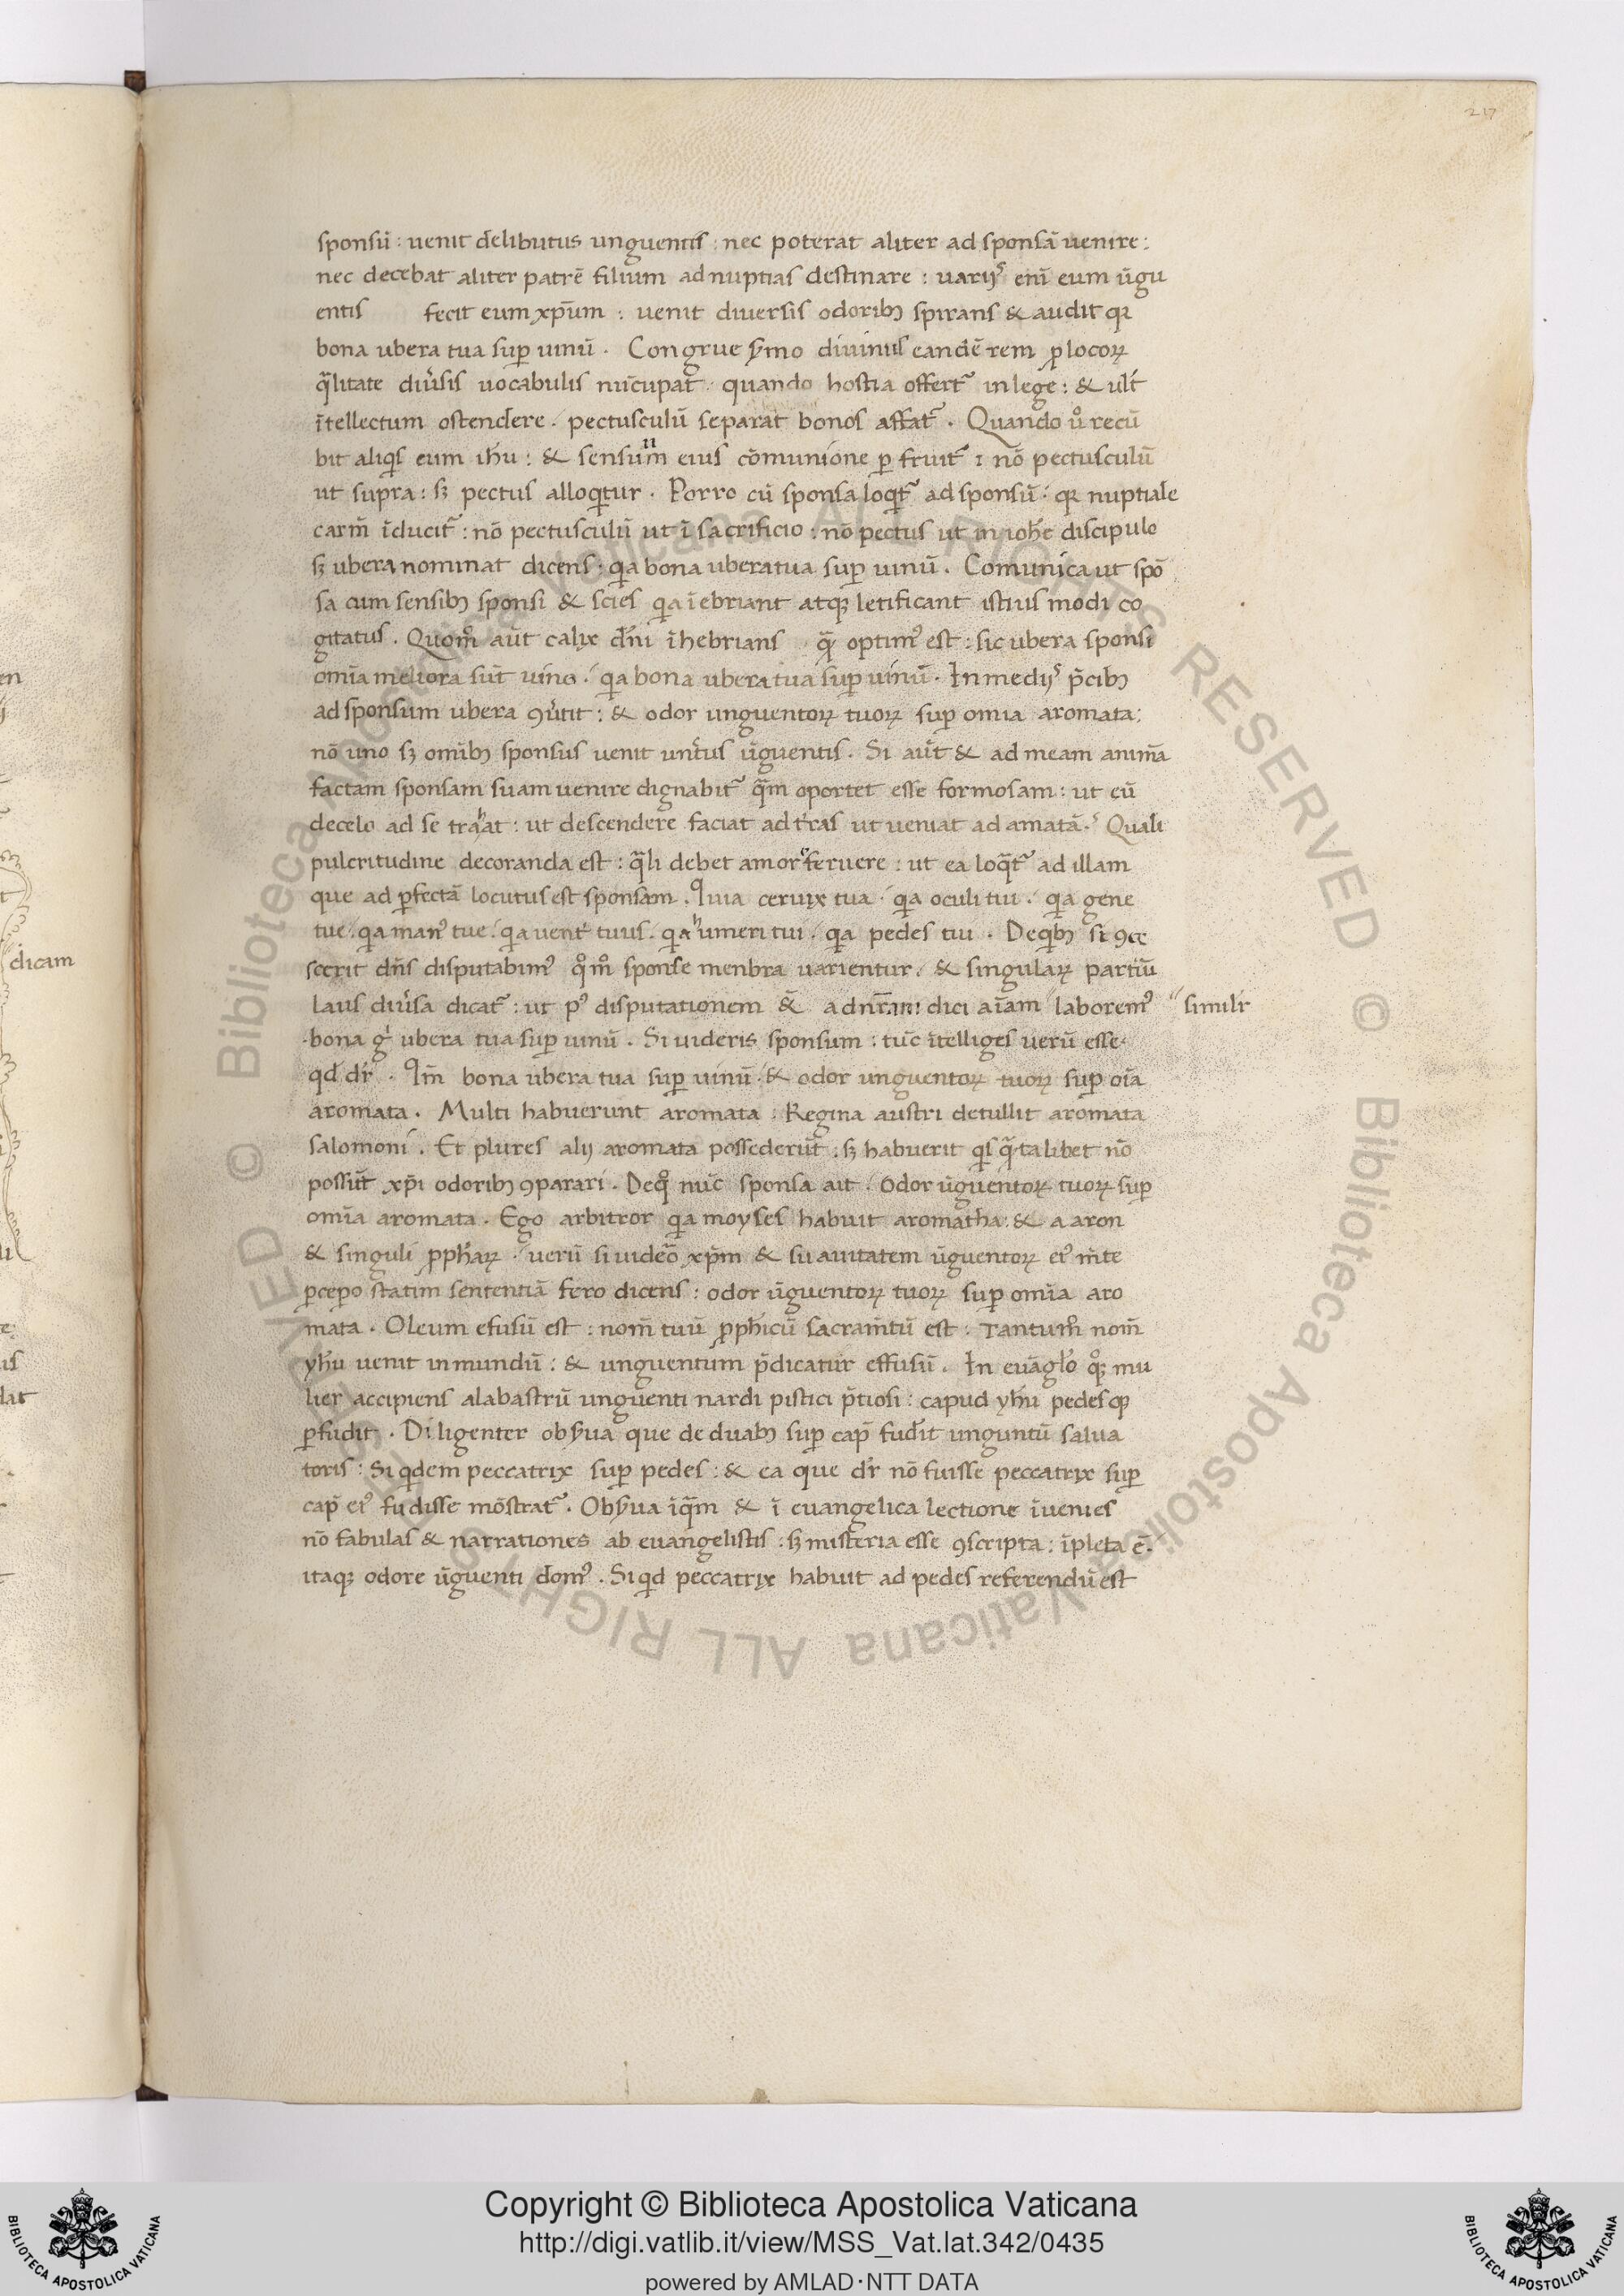 217
sponsū : uenit delibutus unguentis : nec poterat aliter ad sponsā uenire :
nec decebat aliter patrē filium ad nuptias destinare : uarijs enī eum ūgu
entis fecit eum xp̄um : uenit diuersis odoribꝫ spirans & audit qꝛ
bona ubera tua suꝑ uinū . Congrue s̄mo diuinus eandē rem ꝑ locoꝝ
q̄litate diūsis uocabulis nūcupat . quando hostia offert᷑ in lege : & ult̄
ītellectum ostendere . pectusculū separat bonos affat᷑ . Quando ů recū
bit aliqͥs cum ihū : & sensuum eius cōmunione ꝑfruit᷑ : nō pectusculū
ut supra : sꝫ pectus alloqͥtur . Porro cū sponsa loqͥt᷑ ad sponsū : qꝛ nuptiale
carm̄ īducit᷑ : nō pectusculū ut ī sacrificio : nō pectus ut in ioh̄e discipulo
sꝫ ubera nominat dicens : qͥa bona ubera tua suꝑ uinū . Comunica ut spō
sa cum sensibꝫ sponsi & scies qͥa īebriant atqꝫ letificant istius modi co
gitatus . Quom̊ aūt calix dn̄i īhebrians q̄ optimꝰ est : sic ubera sponsi
omīa meliora sūt uino : qͥa bona ubera tua suꝑ uinū . In medijs p̄cibꝫ
ad sponsum ubera ꝯūtit : & odor unguentoꝝ tuoꝝ suꝑ omia aromata :
nō uno sꝫ omībꝫ sponsus uenit unctus ūguentis . Si aūt & ad meam animā
factam sponsam suam uenire dignabit᷑ q̄m oportet esse formosam : ut eū
de celo ad se trahat : ut descendere faciat ad tr̄as ut ueniat ad amatā . Quali
pulcritudine decoranda est : q̄li debet amore feruere : ut ea loqͣt᷑ ad illam
que ad ꝑfectā locutus est sponsam . Quia ceruix tua : qͥa oculi tui : qͥa gene
tue . qͥa manꝰ tue . qͥa uent̄ tuus . qͥa humeri tui . qͥa pedes tui . De qͥbꝫ si ꝯce
sserit dn̄s disputabimꝰ qͦm̊ sponse menbra uarientur . & singulaꝝ partiū
laus diūsa dicat᷑ : ut pꝰ disputationem & ad nr̄am dici aīam laboremꝰ simil̄r
bona gͥ ubera tua suꝑ uinū . Si uideris sponsum : tūc ītelliges uerū esse
qd dr̄ . Qm̄ bona ubera tua suꝑ uinū . & odor unguentoꝝ tuoꝝ suꝑ oīa
aromata . Multi habuerunt aromata : Regina austri detullit aromata
salomoni . Et plures alij aromata possederūt : sꝫ habuerit qͥs q̄talibet nō
possūt xp̄i odoribꝫ ꝯparari . De qͦ nūc sponsa ait . Odor ūguentoꝝ tuoꝝ suꝑ
omīa aromata . Ego arbitror qͥa moyses habuit aromatha : & aaron
& singuli ꝓph̄aꝝ . uerū si uidero xp̄m & suauitatem ūguentoꝝ eiꝰ m̄te
ꝑcepo statim sententiā fero dicens : odor ūguentoꝝ tuoꝝ suꝑ omīa aro
mata . Oleum efusū est : nom̄ tuū ꝓph̄icū sacram̄tū est : Tantum̊ nom̄
yhū uenit in mundū : & unguentum p̄dicatur effusū . In euāglo qͦꝫ mu
lier accipiens alabastrū unguenti nardi pistici p̄tiosi : capud yhū pedesqꝫ
ꝑfudit . Diligenter obs̄ua que de duabꝫ suꝑ cap̄ fudit unguntū salua
toris : Siqͥdem peccatrix suꝑ pedes : & ea que dr̄ nō fuisse peccatrix suꝑ
cap̄ eiꝰ fudisse mōstrat᷑ . Obs̄ua īq̄m & ī euangelica lectione īuenies
nō fabulas & narrationes ab euangelistis : sꝫ misteria esse ꝯscripta : īpleta ē .
itaqꝫ odore ūguenti domꝰ . Si qͥd peccatrix habuit ad pedes referendū est
dicam
Copyright © Biblioteca Apostolica Vaticana
http://digi.vatlib.it/view/MSS_Vat.lat.342/0435
powered by AMLAD·NTT DATA
BIBLIOTECA APOSTOLICA VATICANA
BIBLIOTECA APOSTOLICA VATICANA
© Biblioteca Apostolica Vaticana ALL RIGHTS RESERVED © Biblioteca Apostolica Vaticana ALL RIGHTS RESERVED